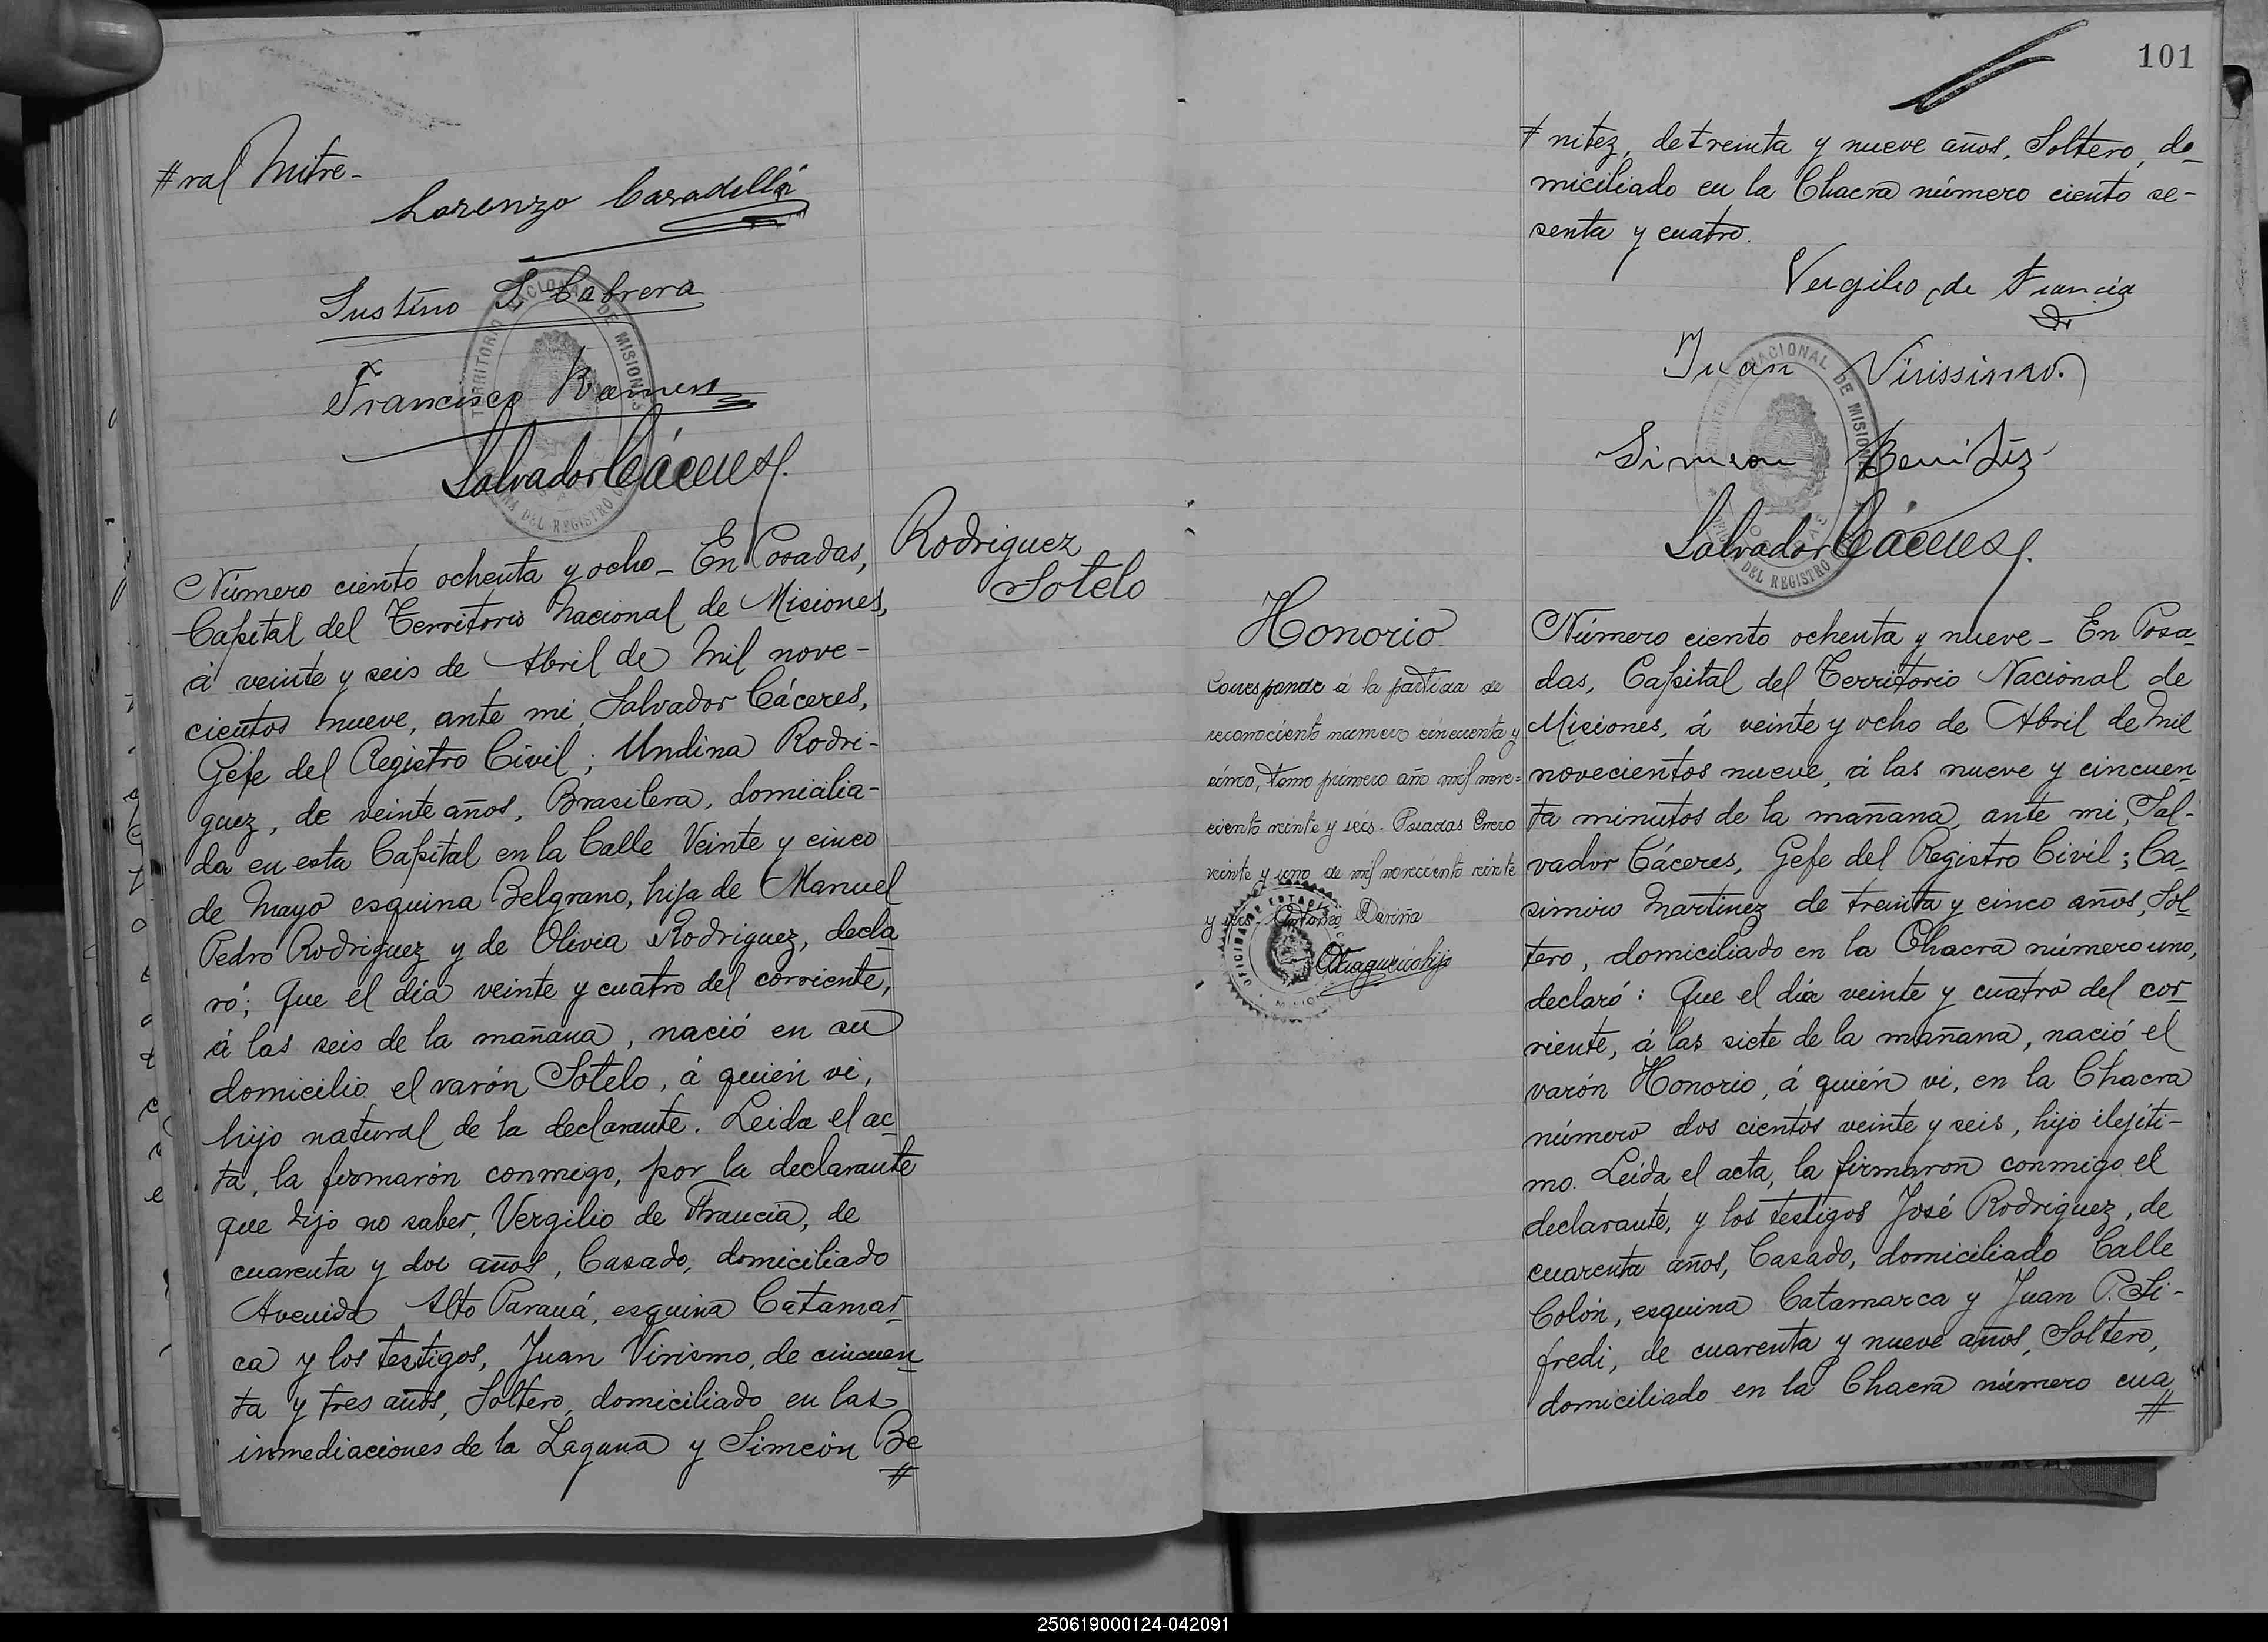 #ral Mitre-
Lorenzo Caradella
Justino S Cabrera
Francisco Ramires
TERRITORIO NACIONAL DE MISIONES
DEL REGISTRO
Salvador Cáceres.
Rodriguez
Sotelo
Número ciento ochenta y ocho- En Posadas,
Capital del Territorio Nacional de Misiones,
á veinte y seis de Abril de Mil nove-
cientos nueve, ante mi, Salvador Cáceres,
Gefe del Registro Civil; Undina Rodri-
guez, de veinte años, Brasilera, domicilia-
da en esta Capital en la Calle Veinte y cinco
de Mayo esquina Belgrano, hija de Manuel
Pedro Rodriguez y de Olivia Rodriguez, decla
ró; Que el día veinte y cuatro del corriente,
á las seis de la mañana, nació en su
domicilio el varón Sotelo, á quién vi,
hijo natural de la declarante. Leida el ac-
ta, la firmarón conmigo, por la declarante
que dijo no saber, Vergilio de Francia, de
cuarenta y dos años, Casado, domiciliado
Avenida Alto Paraná, esquina Catamar-
ca y los testigos, Juan Virismo, de cincuen
ta y tres años, Soltero, domiciliado en las
inmediaciones de la Laguna y Simeón Be
#
101
# nitez, de treinta y nueve años, Soltero, do-
miciliado en la Chacra número ciento se-
senta y cuatro.
Vergilio de Francia
Juan Virissimo.
Simeon Benitez
NACIONAL DE MISIONES
DEL REGISTRO
Salvador Cáceres.
Honorio
Corresponde á la partida de
reconociento numero cincuenta y
cinco, tomo primero año mil nove=
ciento veinte y seis- Posadas Enero
veinte y uno de mil noveciento veinte
y seis- Antonio Dariña
Número ciento ochenta y nueve- En Posa-
das, Capital del Territorio Nacional de
Misiones, á veinte y ocho de Abril de Mil
novecientos nueve, á las nueve y cincuen
ta minutos de la mañana, ante mi, Sal-
vador Cáceres, Gefe del Registro Civil; Ca-
simiro Martinez de treinta y cinco años, Sol-
tero, domiciliado en la Chacra número uno,
declaró: Que el día veinte y cuatro del cor-
riente, á las siete de la mañana, nació el
varón Honorio, á quién vi, en la Chacra
número dos cientos veinte y seis, hijo ilejíti-
mo. Leida el acta, la firmaron conmigo el
declarante, y los testigos José Rodríguez, de
cuarenta años, Casado, domiciliado Calle
Colón, esquina Catamarca y Juan P. Si-
fredi, de cuarenta y nueve años, Soltero,
domiciliado en la Chacra número cua
#
250619000124-042091